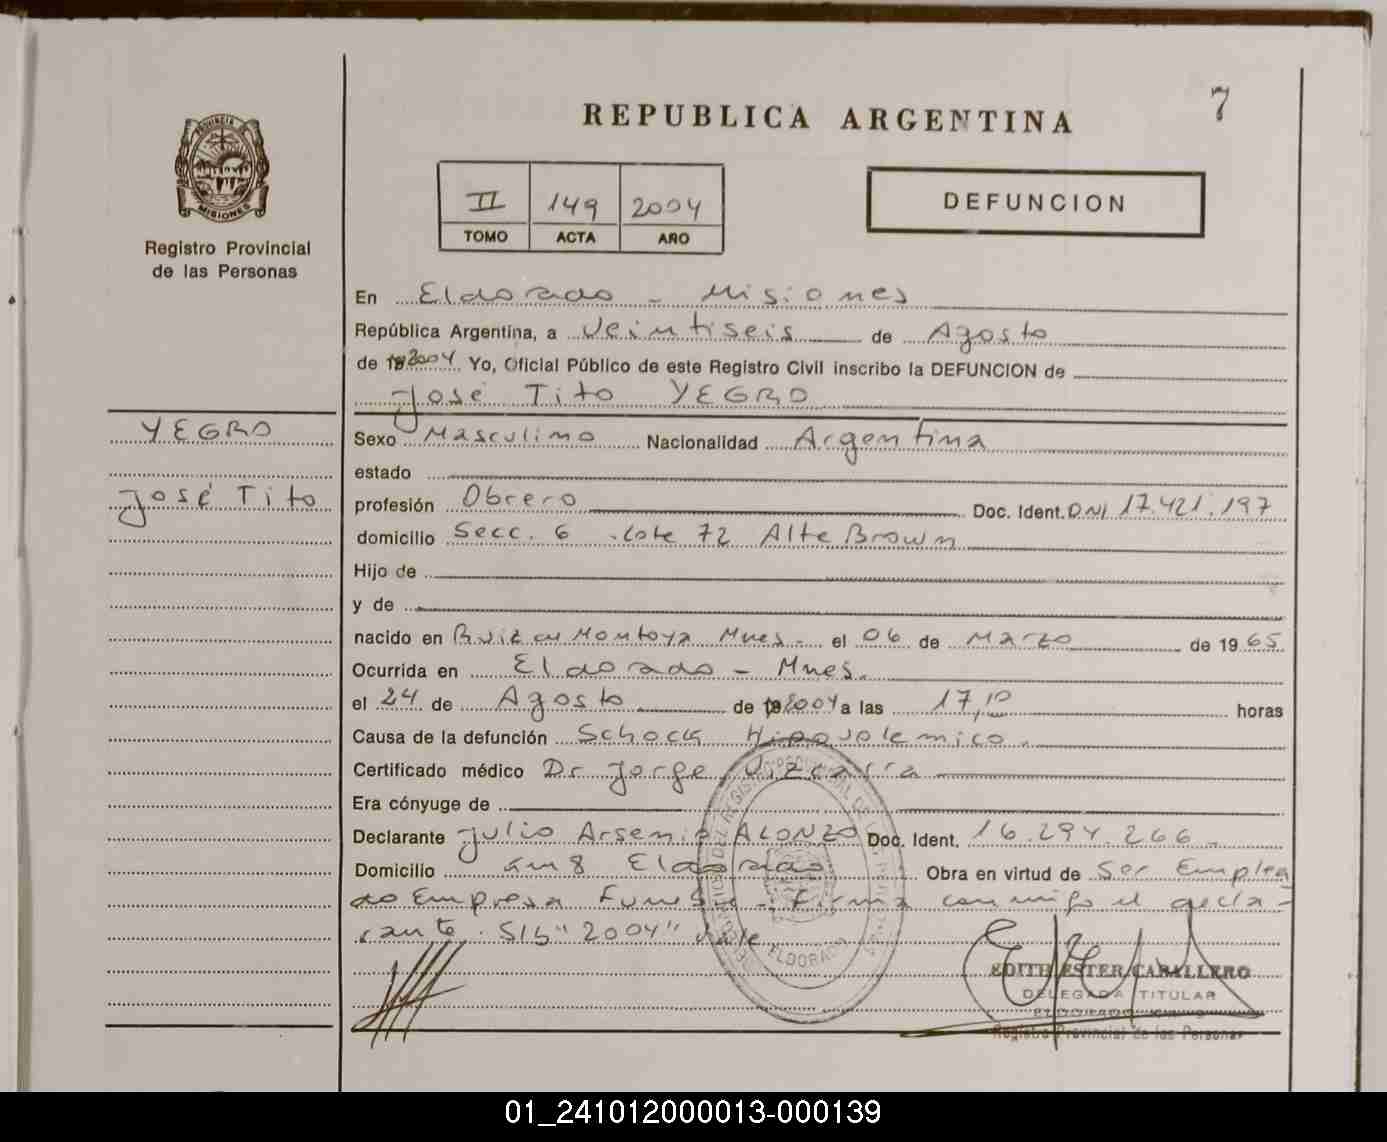 7
REPUBLICA ARGENTINA
PROVINCIA DE
MISIONES
Registro Provincial
de las Personas
II 149 2004
TOMO ACTA AÑO
DEFUNCION
En Eldorado - Misiones
República Argentina, a veintiseis de Agosto
de 19 2004 Yo, Oficial Público de este Registro Civil inscribo la DEFUNCION de
José Tito YEGRO
YEGRO
José Tito
Sexo Masculino Nacionalidad Argentina
estado
profesión Obrero Doc. Ident. DNI 17.421.197
domicilio Secc. 6 Lote 72 Alte Brown
Hijo de
y de
nacido en Ruiz de Montoya Mnes. el 06 de Marzo de 1965
Ocurrida en Eldorado - Mnes.
el 24 de Agosto de 19 2004 a las 17,10 horas
Causa de la defunción Schock Hipovolemico.
Certificado médico Dr Jorge Vizcarra
Era cónyuge de
Declarante Julio Arsenio ALONZO Doc. Ident. 16.294.266
Domicilio km 8 Eldorado Obra en virtud de Ser Emplea
do Empresa Funebre - Firma conmigo el decla-
rante. S/b "2004" Vale
ELDORADO
EDITH ESTER CABALLERO
DELEGADA TITULAR
ELDORADO
Registro Provincial de las Personas
01_241012000013-000139